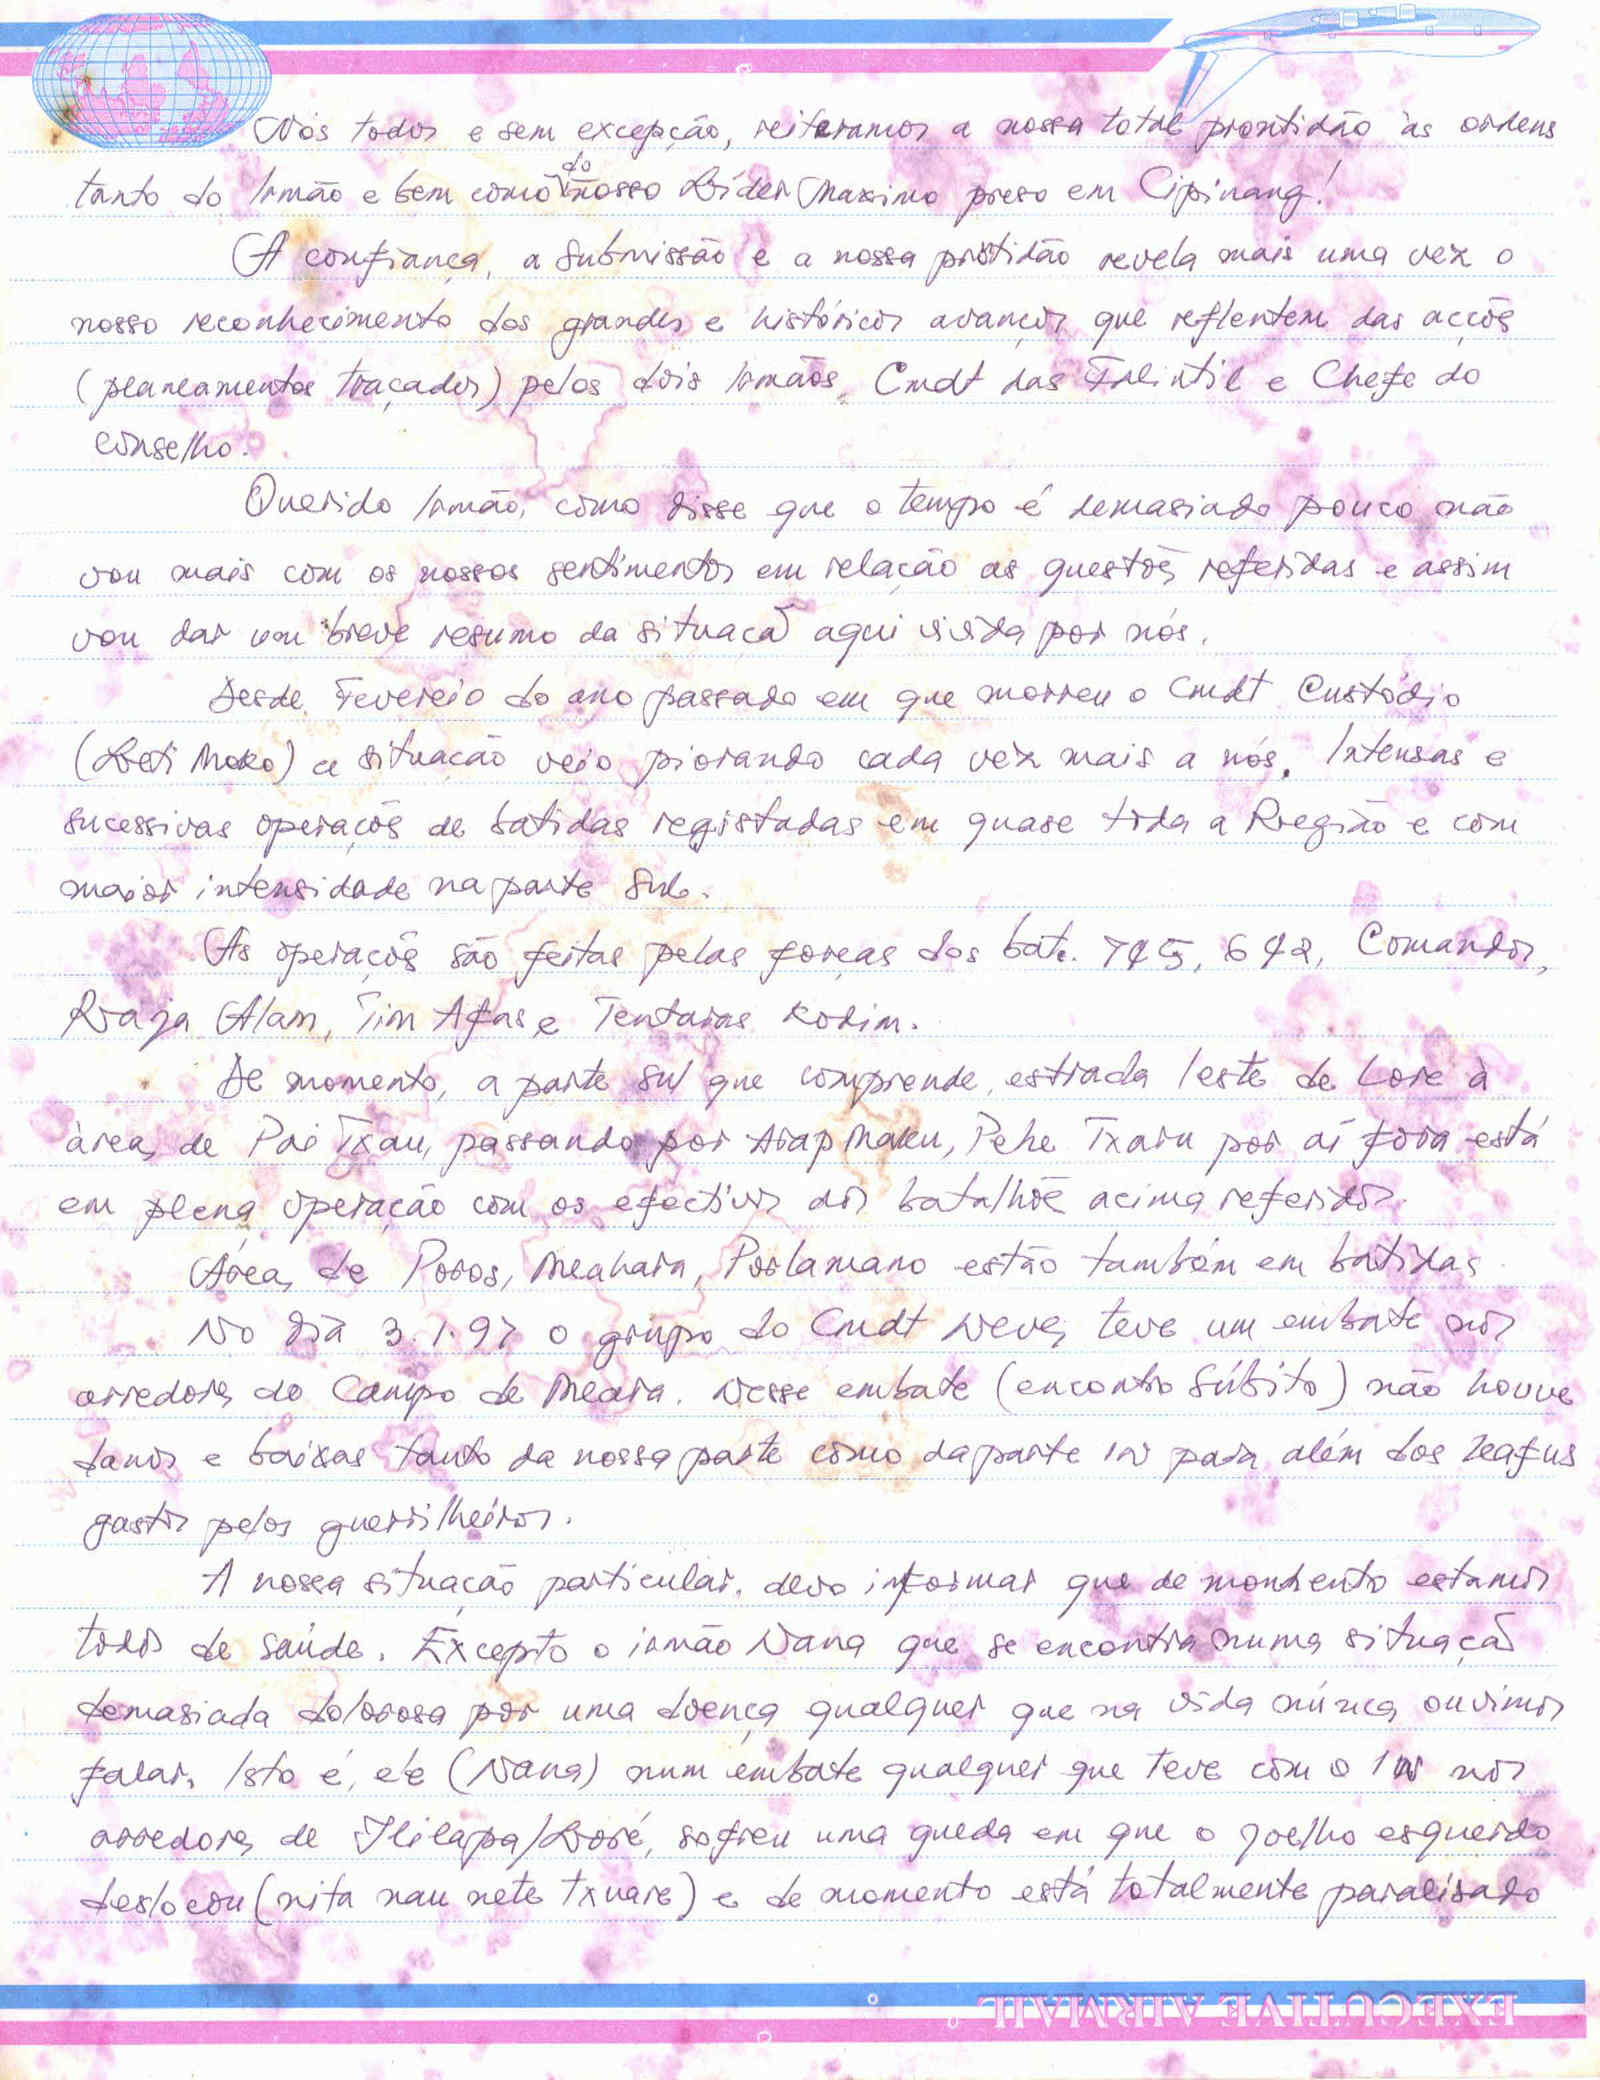 Nós todos e sem excepção, reiteramos a nossa total prontidão às ordens
tanto do Irmão e bem como do nosso Líder Maximo preso em Cipinang!
A confiança, a submissão e a nossa protidão revela mais uma vez o
nosso reconhecimento dos grandes e históricos avanços que reflentem das acções
(planeamentos traçados) pelos dois Irmãos, Cmdt das Falintil e Chefe do
conselho.
Querido Irmão, como disse que o tempo é demasiado pouco não
vou mais com os nossos sentimentos em relação as questões referidas e assim
vou dar um breve resumo da situaçã aqui vivida por nós.
Desde Fevereio do ano passado em que morreu o Cmdt Custódio
(Leti Moko) a situação veio piorando cada vez mais a nós. Intensas e
sucessivas operaçõs de batidas registadas em quase toda a Região e com
maior intensidade na parte Sul.
As operaçõs são feitas pelas forças dos bat. 745, 642, Comandos,
Raja Alam, Tim Alfas e Tentaras Kodim.
De momento, a parte sul que comprende, estrada leste de Lore à
área de Pai Txau, passando por Arap Maku, Pehe Txaru por aí fora está
em plena operação com os efectivos dos batalhõe acima referidos.
Área de Poros, Meahara, Porlamano estão também em batidas.
No dia 3.1.97 o grupo do Cmdt Neves teve um embate nos
arredores do Campo de Meara. Nesse embate (encontro súbito) não houve
danos e baixas tanto da nossa parte como da parte IN para além dos leafus
gastos pelos guerrilheiros.
A nossa situação particular, devo informar que de momento estamos
todos de saúde. Excepto o irmão Nana que se encontra numa situaçã
demasiada dolorosa por uma doença qualquer que na vida núnca ouvimos
falar. Isto é, ele (Nana) num embate qualquer que teve com o IN nos
arredores de Ililapa/Loré, sofreu uma queda em que o joelho esquerdo
deslocou (nita nau nete txuare) e de momento está totalmente paralisado
EXECUTIVE AIRMAIL